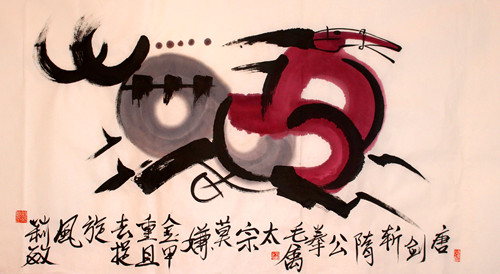 唐剑斩隋公拳毛属太宗莫嫌金甲重且去捉旋风
莉敏